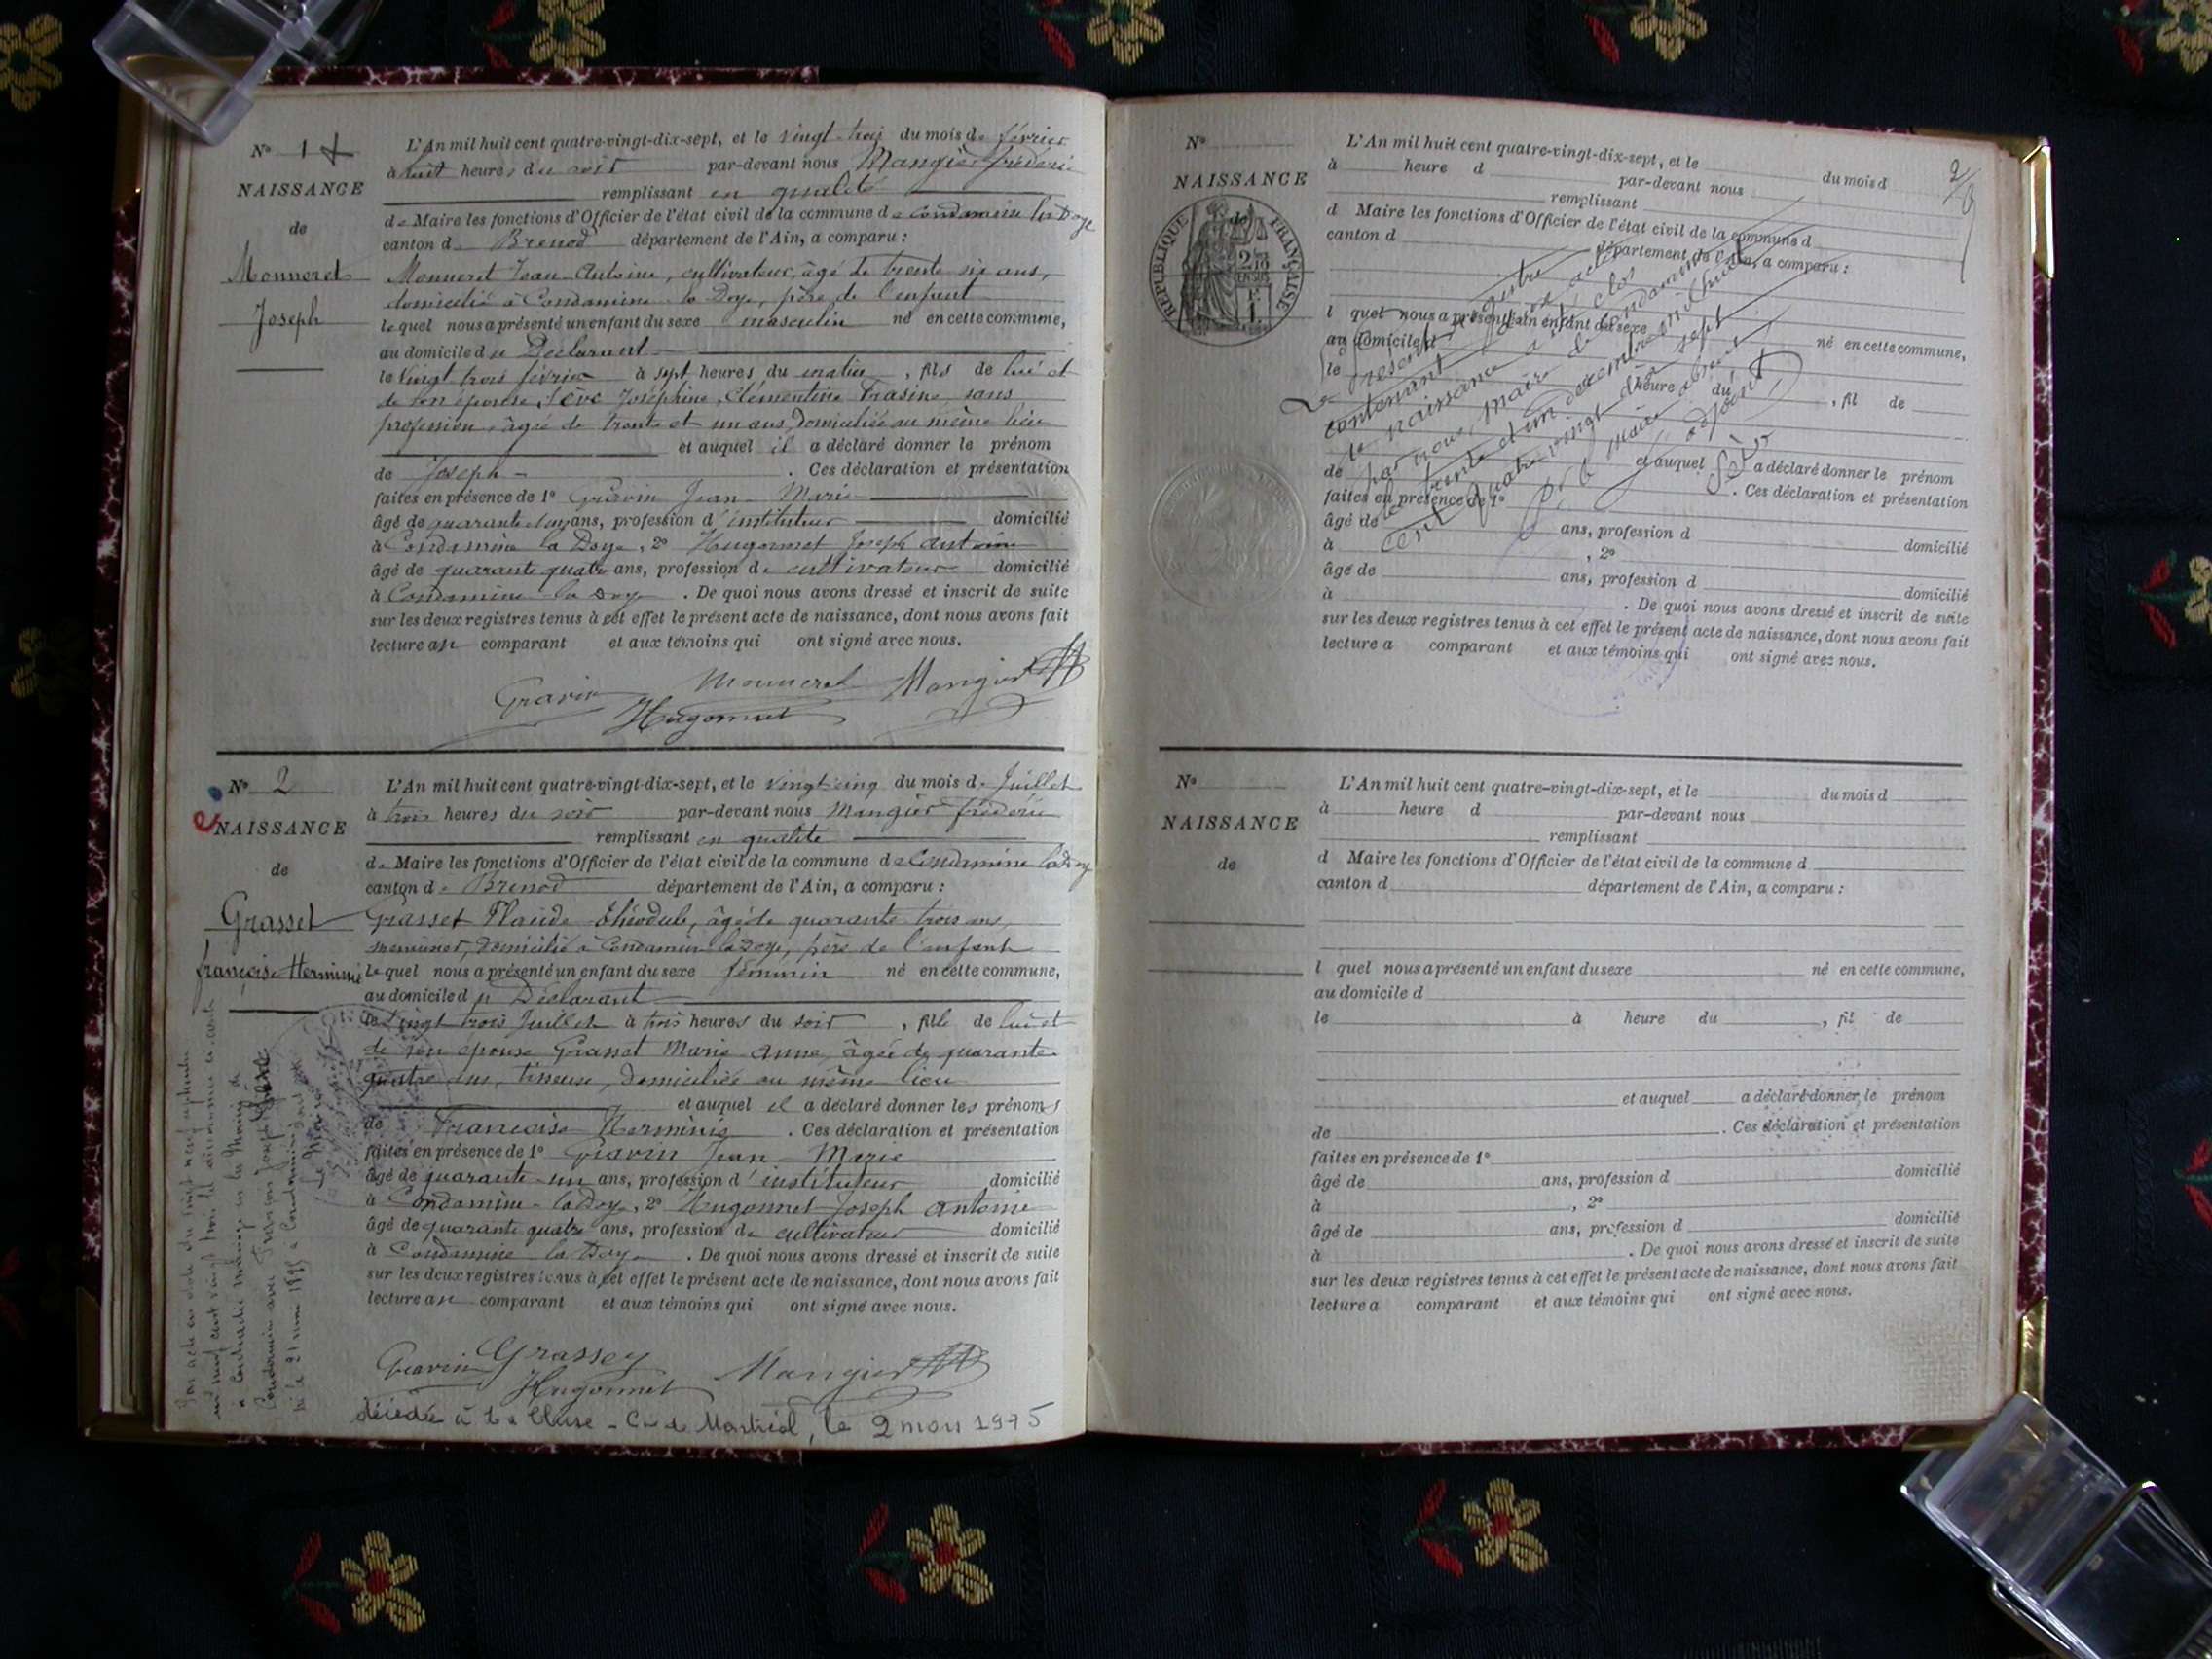 N° 1
NAISSANCE
de
Monneret
Joseph
L'An mil huit cent quatre-vingt-dix-sept, et le vingt-trois du mois de février
à huit heures du soir par-devant nous Mangier frédéric
remplissant en qualité
de Maire les fonctions d'Officier de l'état civil de la commune de Condamine la Doye
canton de Brenod département de l'Ain, a comparu :
Monneret Jean-Antoine, cultivateur, âgé de trente six ans,
domicilié à Condamine la Doye, père de l'enfant
lequel nous a présenté un enfant du sexe masculin né en cette commune,
au domicile du Déclarant
le vingt trois février à sept heures du matin, fils de lui et
de son épouse, Sève Joséphine, Clémentine Frasine, sans
profession, âgée de trente et un ans, domiciliée au même lieu
et auquel il a déclaré donner le prénom
de Joseph. Ces déclaration et présentation
faites en présence de 1° Gravin Jean-Marie
âgé de quarante et un ans, profession d'instituteur domicilié
à Condamine la Doye, 2° Hugonnet Joseph Antoine
âgé de quarante quatre ans, profession de cultivateur domicilié
à Condamine la Doye. De quoi nous avons dressé et inscrit de suite
sur les deux registres tenus à cet effet le présent acte de naissance, dont nous avons fait
lecture au comparant et aux témoins qui ont signé avec nous.
Gravin Monneret Mangier
Hugonnet
N° 2
NAISSANCE
de
Grasset
françoise Herminie
L'An mil huit cent quatre-vingt-dix-sept, et le vingt-cinq du mois de Juillet
à trois heures du soir par-devant nous Mangier frédéric
remplissant en qualité
de Maire les fonctions d'Officier de l'état civil de la commune de Condamine la Doye
canton de Brenod département de l'Ain, a comparu :
Grasset Claude Théodule, âgé de quarante trois ans,
menuisier, domicilié à Condamine la Doye, père de l'enfant
lequel nous a présenté un enfant du sexe féminin né en cette commune,
au domicile du Déclarant
le vingt trois Juillet à trois heures du soir, fille de lui et
de son épouse Grasset Marie Anne, âgée de quarante
quatre ans, tisseuse, domiciliée au même lieu
et auquel il a déclaré donner les prénoms
de Françoise Herminie. Ces déclaration et présentation
faites en présence de 1° Gravin Jean-Marie
âgé de quarante-un ans, profession d'instituteur domicilié
à Condamine-la Doye, 2° Hugonnet Joseph Antoine
âgé de quarante quatre ans, profession de cultivateur domicilié
à Condamine la Doye. De quoi nous avons dressé et inscrit de suite
sur les deux registres tenus à cet effet le présent acte de naissance, dont nous avons fait
lecture au comparant et aux témoins qui ont signé avec nous.
Gravin Grasset Mangier
Hugonnet
décédée à La Cluse - Cne de Martial, le 2 mars 1975
Par acte en date du vingt neuf septembre
mil neuf cent vingt trois
a contracté mariage en la Mairie de
Condamine avec
né le 21 mai 1895 à Condamine
Le Maire
N°
NAISSANCE
de
RÉPUBLIQUE FRANÇAISE
2/10 EN SUS
1F
2/6
L'An mil huit cent quatre-vingt-dix-sept, et le du mois d
à heure d par-devant nous
remplissant
d Maire les fonctions d'Officier de l'état civil de la commune d
canton d département de l'Ain, a comparu :
l quel nous a présenté un enfant du sexe né en cette commune,
au domicile d
le à heure du , fil de
et auquel a déclaré donner le prénom
de . Ces déclaration et présentation
faites en présence de 1°
âgé de ans, profession d domicilié
à , 2°
âgé de ans, profession d domicilié
à . De quoi nous avons dressé et inscrit de suite
sur les deux registres tenus à cet effet le présent acte de naissance, dont nous avons fait
lecture a comparant et aux témoins qui ont signé avec nous.
Le présent registre
contenant deux actes
de naissance a été clos
par nous, maire de Condamine
le trente et un décembre mil huit
cent quatre vingt dix sept
P. le Maire absent
L'adjoint
Sève
N°
NAISSANCE
de
L'An mil huit cent quatre-vingt-dix-sept, et le du mois d
à heure d par-devant nous
remplissant
d Maire les fonctions d'Officier de l'état civil de la commune d
canton d département de l'Ain, a comparu :
l quel nous a présenté un enfant du sexe né en cette commune,
au domicile d
le à heure du , fil de
et auquel a déclaré donner le prénom
de . Ces déclaration et présentation
faites en présence de 1°
âgé de ans, profession d domicilié
à , 2°
âgé de ans, profession d domicilié
à . De quoi nous avons dressé et inscrit de suite
sur les deux registres tenus à cet effet le présent acte de naissance, dont nous avons fait
lecture a comparant et aux témoins qui ont signé avec nous.